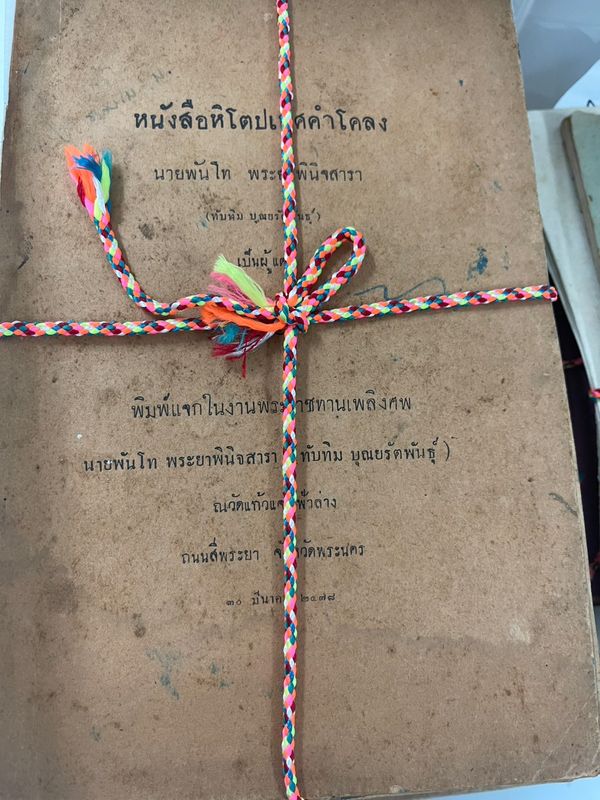 หนังสือหิโตปเทศคำโคลง
นายพันโท พระยาพินิจสารา
(ทับทิม บุณยรัตพันธุ์)
เป็นผู้แต่ง
พิมพ์แจกในงานพระราชทานเพลิงศพ
นายพันโท พระยาพินิจสารา (ทับทิม บุณยรัตพันธุ์)
ณวัดแก้วแจ่มฟ้าล่าง
ถนนสี่พระยา จังหวัดพระนคร
๓๐ มีนาคม ๒๔๗๘